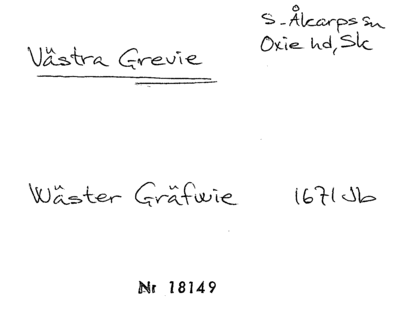 S-Åkarps sn
Västra Grevie
Oxie hd, Sk
Wäster Gräfwie 1671 Jb
Nr 18149